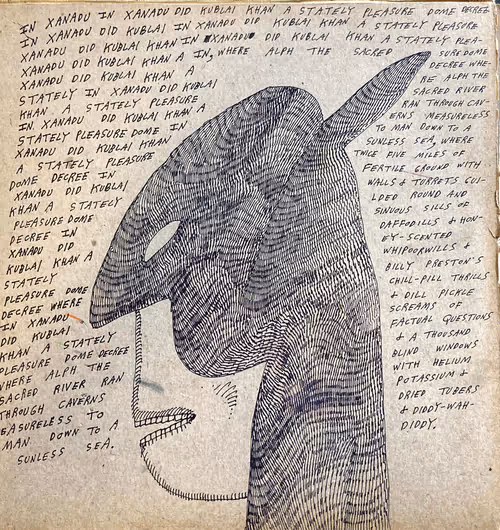 IN XANADU IN XANADU DID KUBLAI KHAN A STATELY PLEASURE DOME DECREE
IN XANADU DID KUBLAI IN XANADU DID KUBLAI KHAN A STATELY PLEASURE
XANADU DID KUBLAI KHAN IN XANADU DID KUBLAI KHAN A STATELY PLEA-
XANADU DID KUBLAI KHAN A IN, WHERE ALPH THE SACRED
XANADU DID KUBLAI KHAN A
STATELY IN XANADU DID KUBLAI
KHAN A STATELY PLEASURE
IN XANADU DID KUBLAI KHAN A
STATELY PLEASURE DOME IN
XANADU DID KUBLAI KHAN
A STATELY PLEASURE
DOME DECREE IN
XANADU DID KUBLAI
KHAN A STATELY
PLEASURE DOME
DECREE IN
XANADU DID
KUBLAI KHAN A
STATELY
PLEASURE DOME
DECREE WHERE
IN XANADU
DID KUBLAI
KHAN A STATELY
PLEASURE DOME DECREE
WHERE ALPH THE
SACRED RIVER RAN
THROUGH CAVERNS
EASURELESS TO
MAN DOWN TO A
SUNLESS SEA.
SURE DOME
DECREE WHE-
RE ALPH THE
SACRED RIVER
RAN THROUGH CAV-
ERNS MEASURELESS
TO MAN DOWN TO A
SUNLESS SEA, WHERE
TWICE FIVE MILES OF
FERTILE GROUND WITH
WALLS & TURRETS GUI-
LDED ROUND AND
SINUOUS SILLS OF
DAFFODILLS & HON-
EY-SCENTED
WHIPOORWILLS &
BILLY PRESTON'S
CHILL-PILL THRILLS
& DILL PICKLE
SCREAMS OF
FACTUAL QUESTIONS
& A THOUSAND
BLIND WINDOWS
WITH HELIUM
POTASSIUM &
DRIED TUBERS
& DIDDY-WAH-
DIDDY.